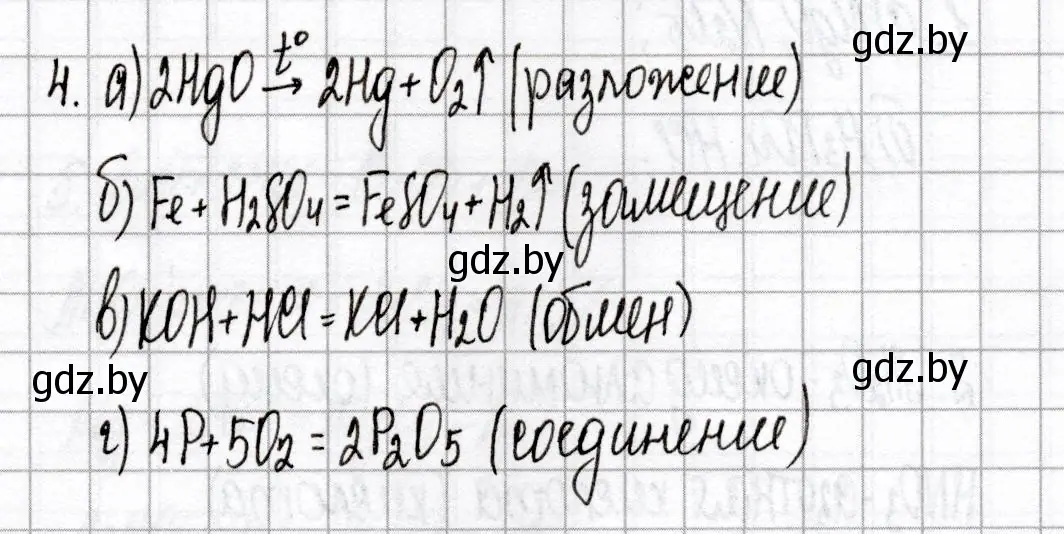 gdz.by
4. а) 2HgO t°→ 2Hg + O₂↑ (разложение)
б) Fe + H₂SO₄ = FeSO₄ + H₂↑ (замещение)
gdz.by
в) KOH + HCl = KCl + H₂O (обмен)
gdz.by
gdz.by
г) 4P + 5O₂ = 2P₂O₅ (соединение)